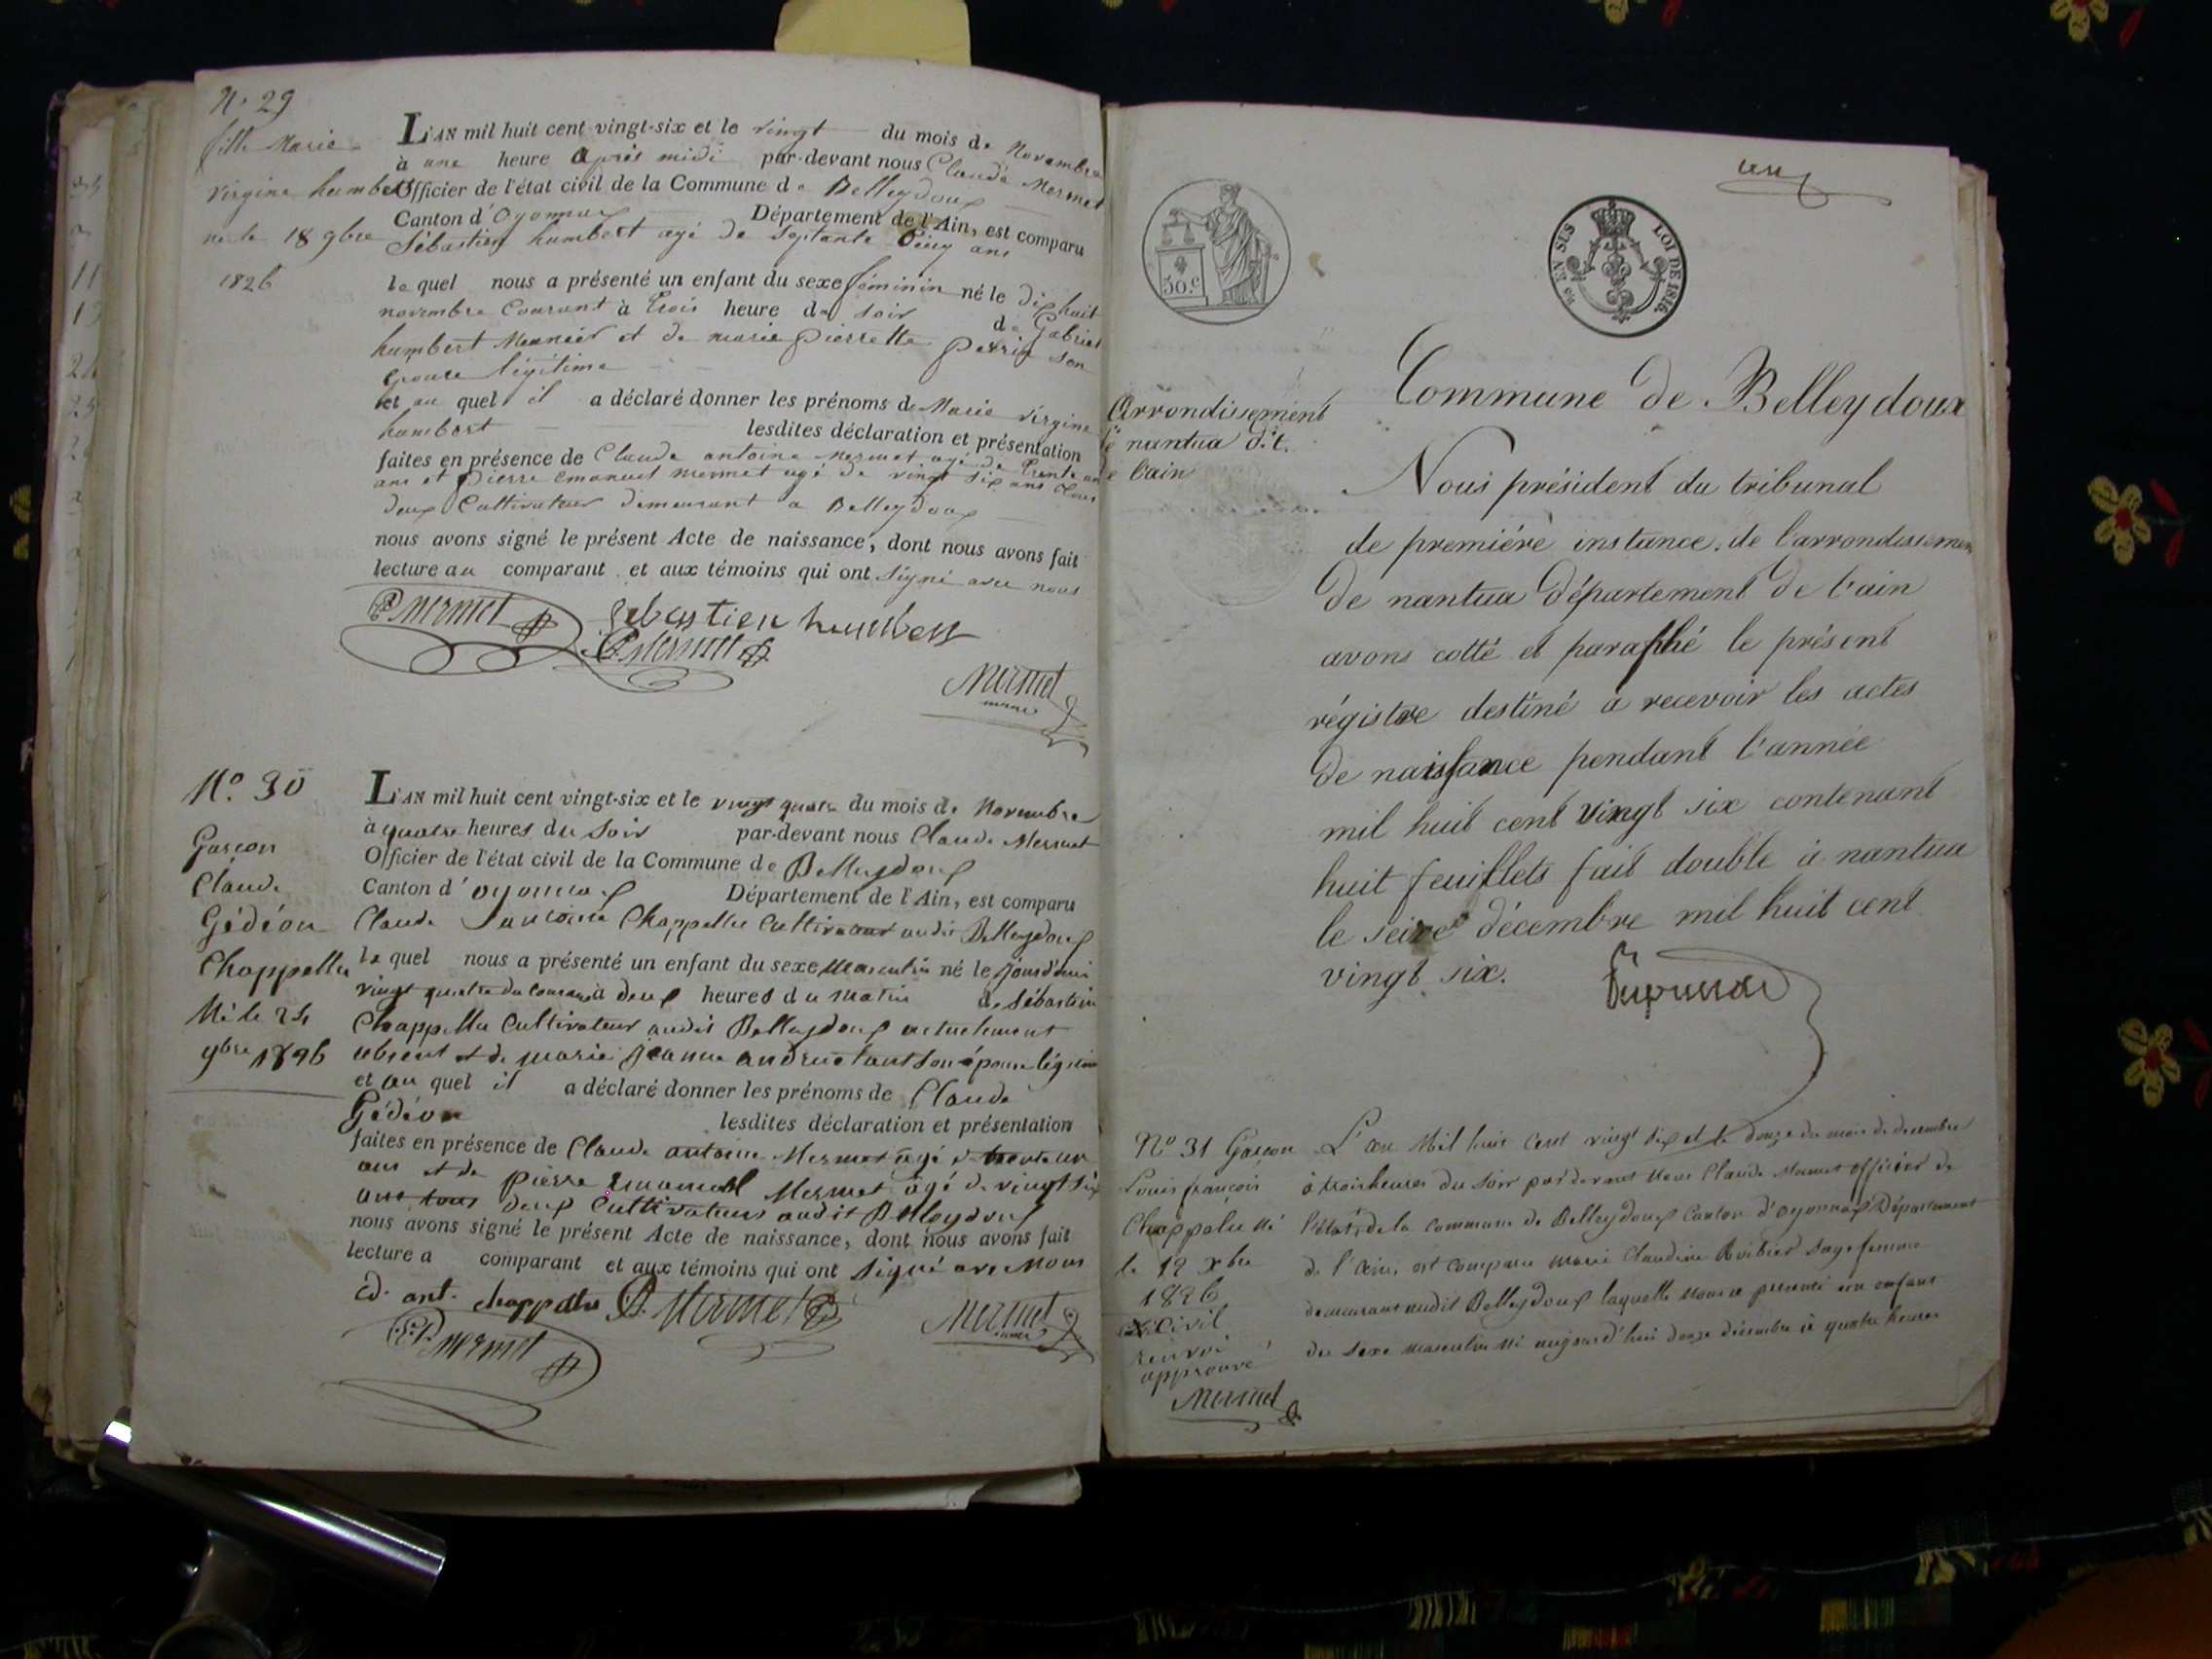 N° 29
fille Marie
Virgine humbert
né le 18 9bre
1826
L'AN mil huit cent vingt-six et le vingt du mois de Novembre
à une heure après midi par-devant nous Claude Mermet
Officier de l'état civil de la Commune de Belleydoux
Canton d'Oyonnax Département de l'Ain, est comparu
Sébastien humbert agé de septante Cinq ans
le quel nous a présenté un enfant du sexe féminin né le dix huit
novembre Courant à trois heure du soir de Gabriel
humbert Meunier et de marie pierrette perrin son
épouse légitime
et au quel il a déclaré donner les prénoms de Marie Virgine
humbert lesdites déclaration et présentation
faites en présence de Claude antoine Mermet agé de trente un
ans et pierre emanuel mermet agé de vingt six ans tous
deux Cultivateur demeurant a Belleydoux
nous avons signé le présent Acte de naissance, dont nous avons fait
lecture au comparant et aux témoins qui ont signé avec nous
mermet sebastien humbert
Mermet
Mermet
maire
N° 30
Garçon
Claude
Gédéon
Chappellu
Né le 24
9bre 1826
L'AN mil huit cent vingt-six et le vingt quatre du mois de Novembre
à quatre heures du soir par-devant nous Claude Mermet
Officier de l'état civil de la Commune de Belleydoux
Canton d'oyonnax Département de l'Ain, est comparu
Claude antoine Chappellu Cultivateur audit Belleydoux
le quel nous a présenté un enfant du sexe Masculin né le jourd'hui
vingt quatre du courant à deux heures du matin de Sébastien
Chappellu Cultivateur audit Belleydoux actuelement
absent et de marie jeanne son épouse légitime
et au quel il a déclaré donner les prénoms de Claude
Gédéon lesdites déclaration et présentation
faites en présence de Claude antoine Mermet agé de trente un
ans et de pierre emanuel Mermet agé de vingt six
ans tous deux Cultivateurs audit Belleydoux
nous avons signé le présent Acte de naissance, dont nous avons fait
lecture a comparant et aux témoins qui ont signé avec Nous
Cd. ant. chappellu Mermet
Mermet
maire
mermet
un
50.C
EN SUS LOI DE 1816.
Commune de Belleydoux
Arrondissement
de nantua d.t
de l'ain
Nous président du tribunal
de première instance de l'arrondissement
de nantua département de l'ain
avons cotté et paraphé le présent
régistre destiné à recevoir les actes
de naissance pendant l'année
mil huit cent vingt six contenant
huit feuillets fait double à nantua
le seize décembre mil huit cent
vingt six.
N° 31 Garçon
Louis françois
Chappelu Né
le 12 xbre
1826
civil
renvoi
approuvé
Mermet
L'an Mil huit cent vingt six et le douze du mois de decembre
à trois heures du soir par devant Nous Claude Mermet officier de
l'état, de la commune de Belleydoux Canton d'oyonnax Département
de l'Ain, est comparu marie Claudine sage femme
demeurant audit Belleydoux laquelle nous a présenté un enfant
du sexe masculin né aujourd'hui douze décembre à quatre heures